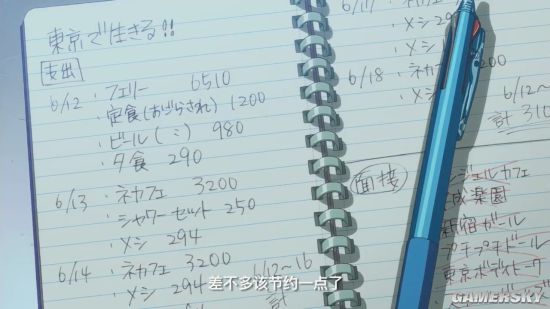 東京で生きる!!
支出
6/12 ・フェリー 6510
・定食(おごらされ) 1200
・ビール(〃) 980
・夕食 290
6/13 ・ネカフェ 3200
・シャワーセット 250
・メシ 294
6/14 ・ネカフェ 3200
・メシ 294
6/12~16
計
6/17
・メシ 29
・メシ
6/18 ・ネカフェ 200
・メシ
6/12~
計 310
面接
ジェルカフェ
成楽園
新宿ガール
プチプチドール
東京ボディトーク
差不多该节约一点了
GAMERSKY